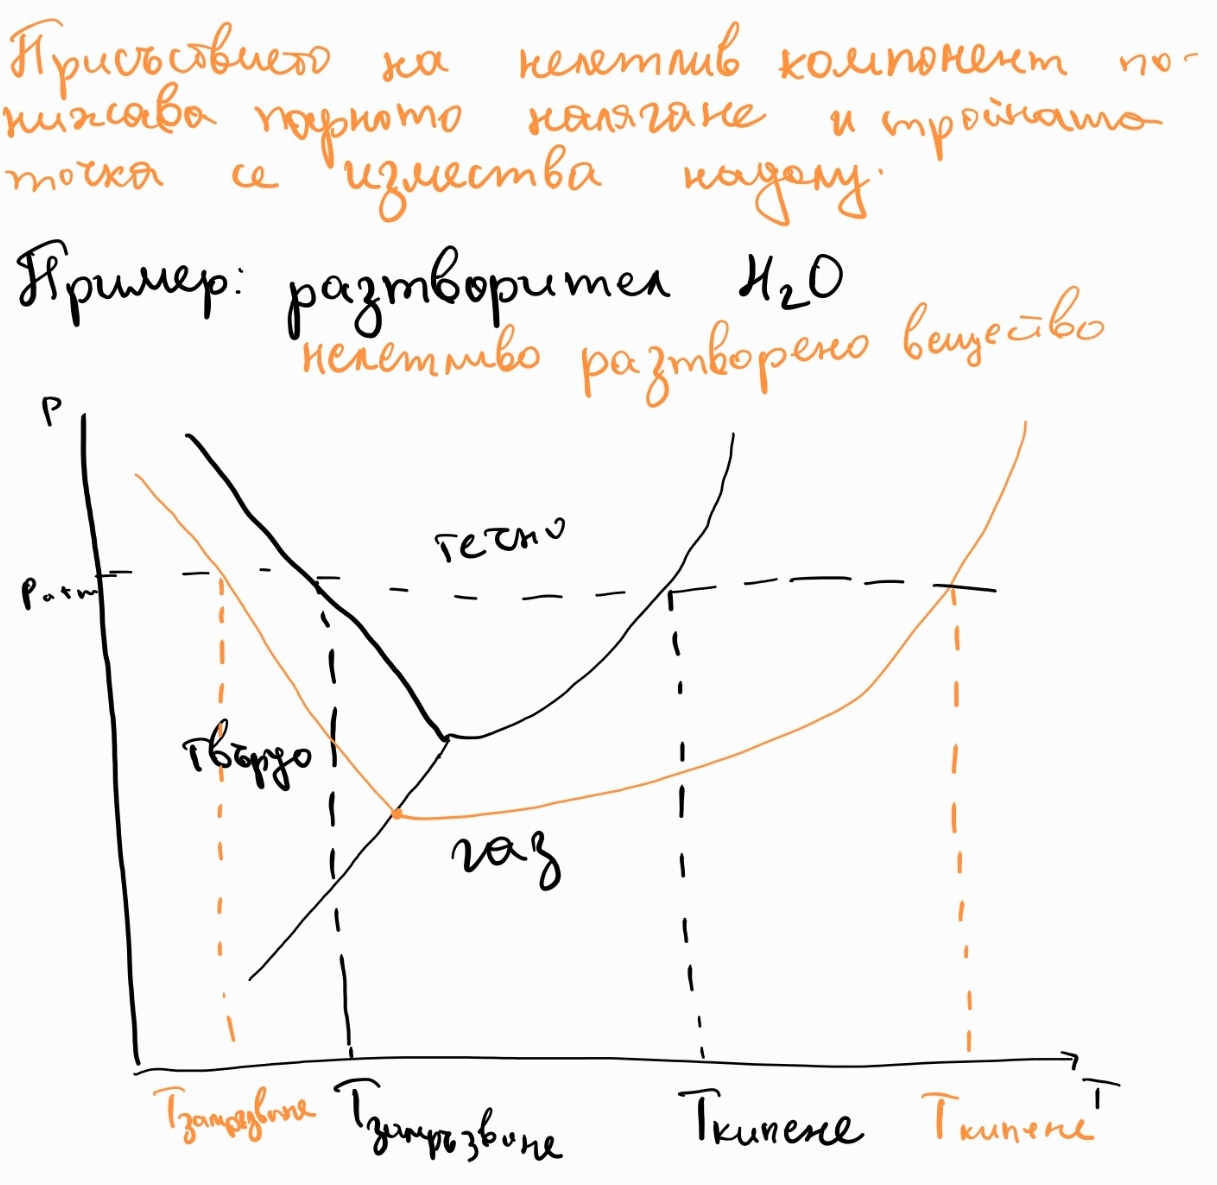 Присъствието на нелетлив компонент по-
нижава парното налягане и тройната
точка се измества надолу.
Пример: разтворител H₂O
нелетливо разтворено вещество
P
течно
Patm
твърдо
газ
T
Tзамръзване Tзамръзване Tкипене Tкипене